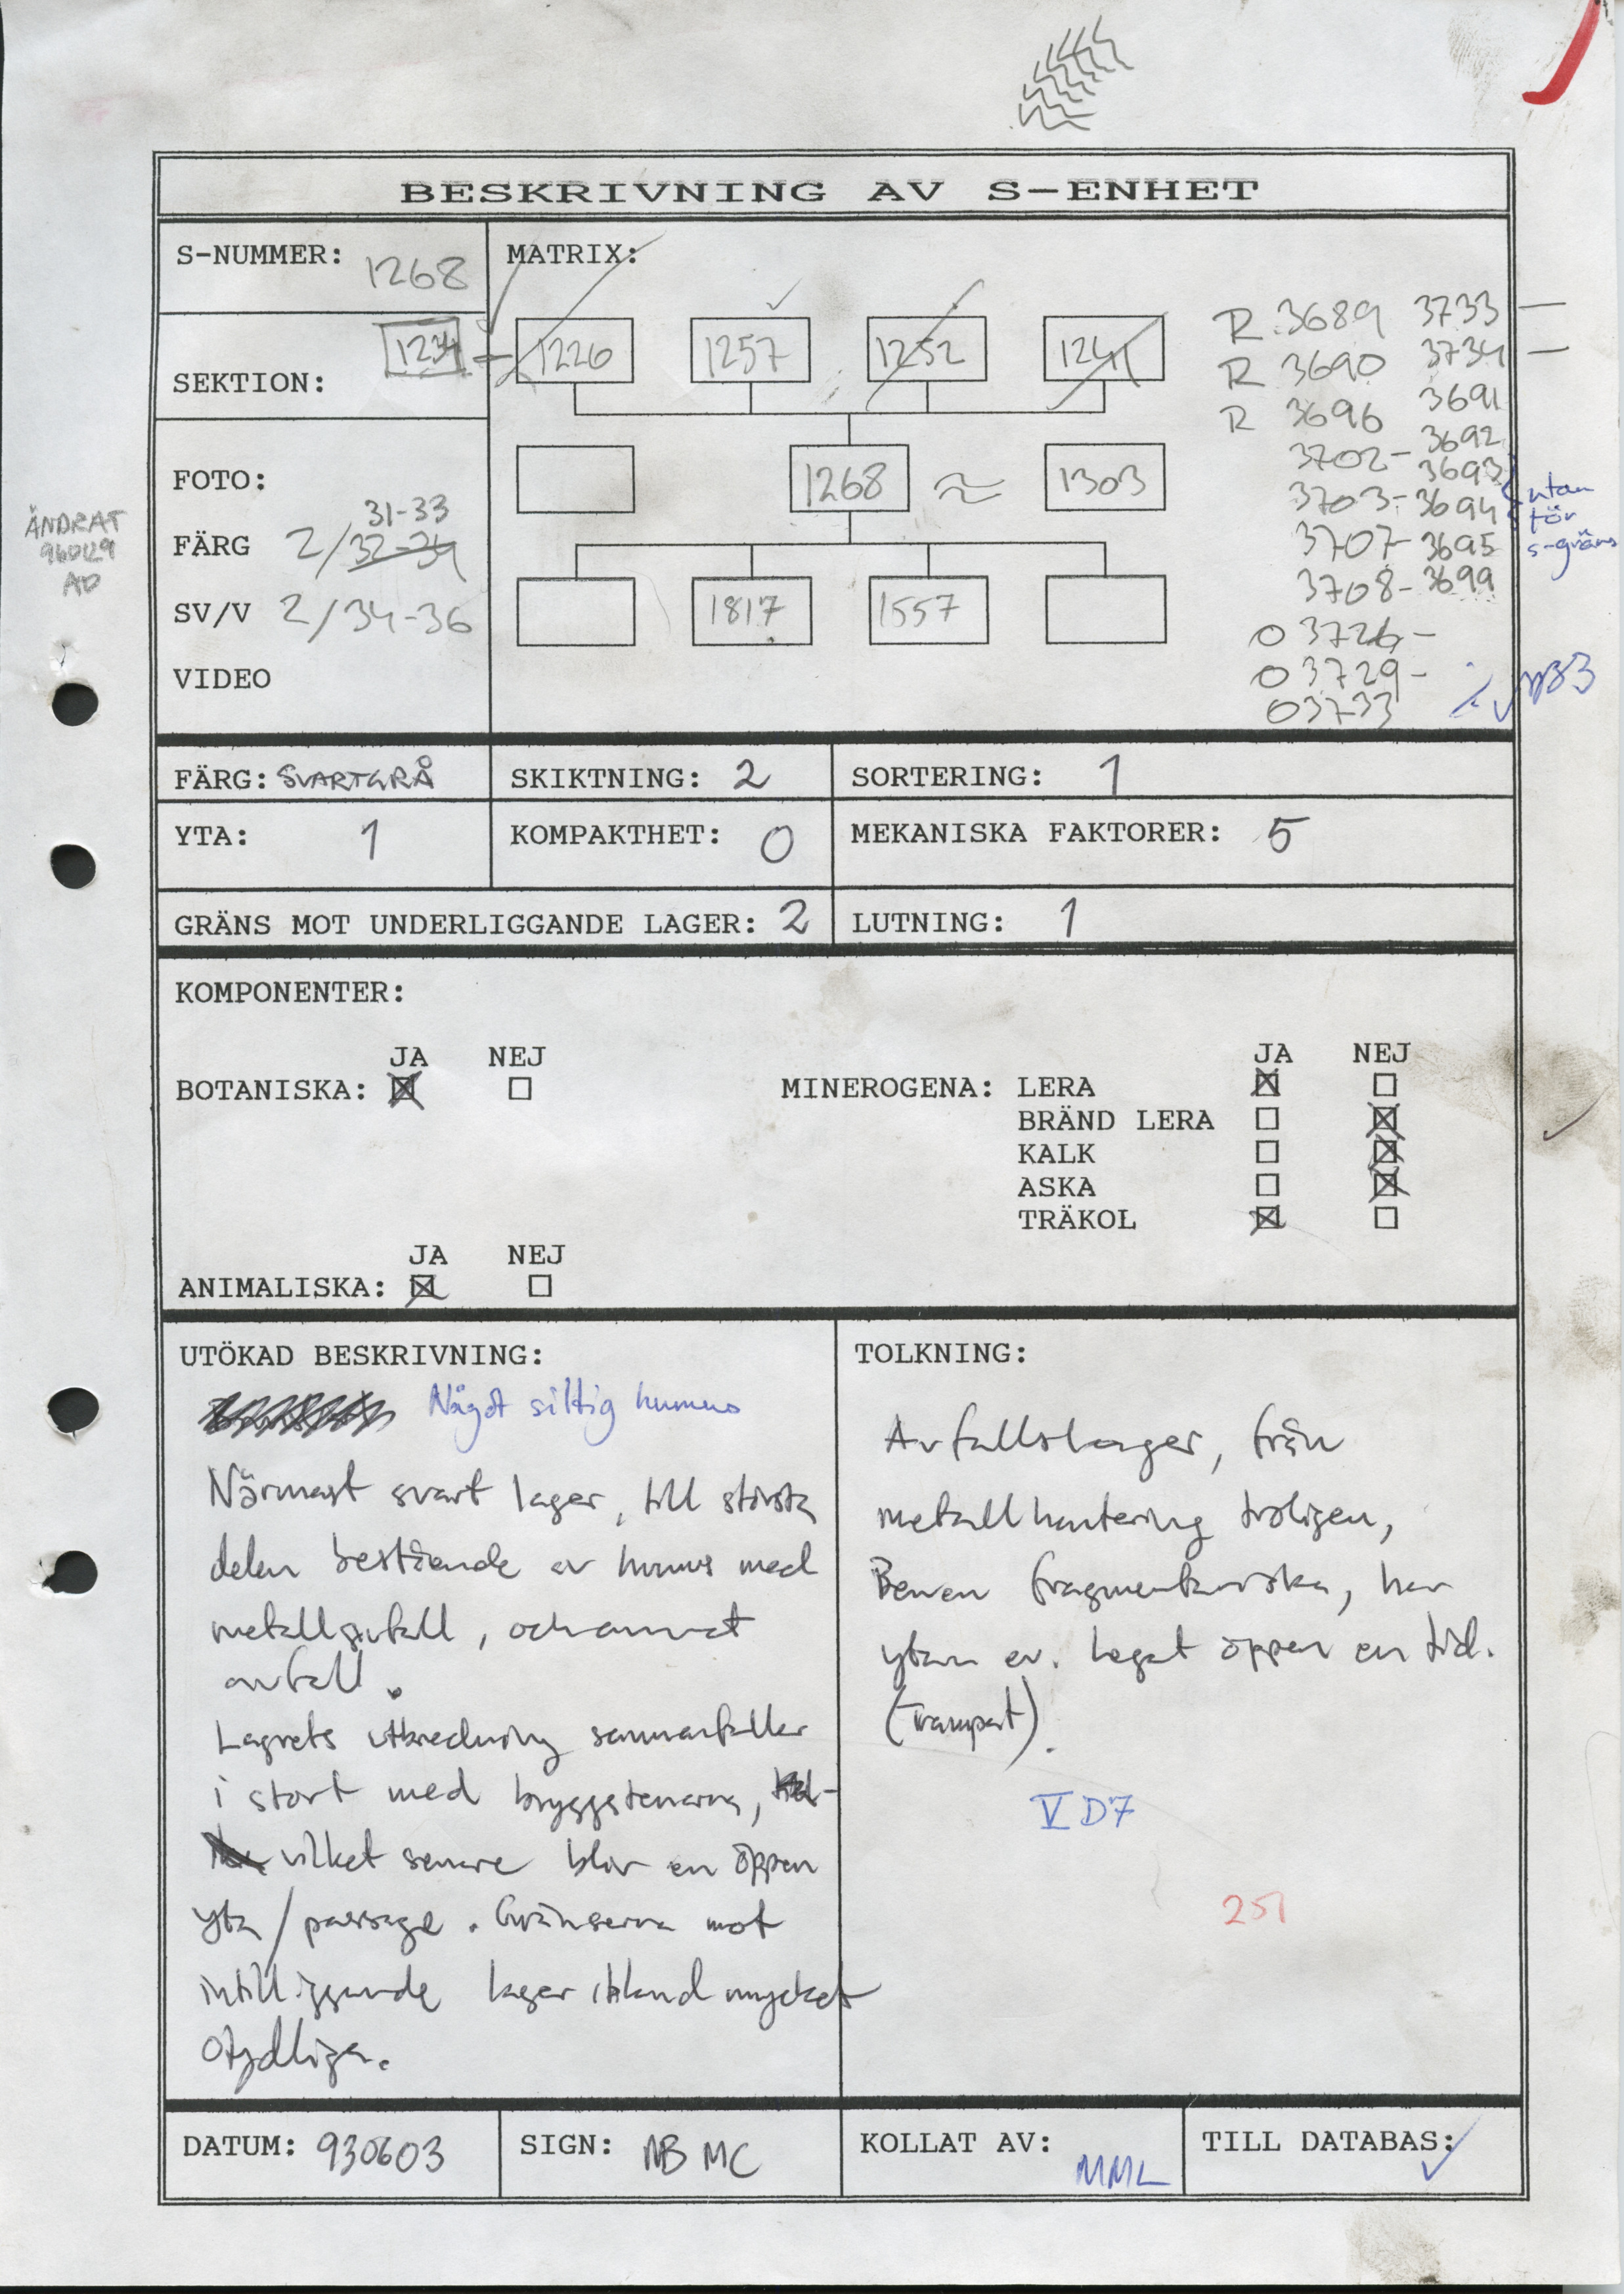 BESKRIVNING AV S-ENHET
S-NUMMER: 1268
MATRIX:
SEKTION:
1234 1226 1257 1252 1241
1268 ≈ 1303
1817 1557
R 3689 3733 —
R 3690 3734 —
R 3696 3691
3702- 3692
3703- 3693
3694
3707- 3695
3708- 3699
O 3726 -
O 3729 -
O 3733
utan
för
s-gräns
FOTO:
31-33
FÄRG 2/32-34
SV/V 2/34-36
VIDEO
ÄNDRAT
AD
FÄRG: SVARTGRÅ
SKIKTNING: 2
SORTERING: 1
YTA: 1
KOMPAKTHET: 0
MEKANISKA FAKTORER: 5
GRÄNS MOT UNDERLIGGANDE LAGER: 2
LUTNING: 1
KOMPONENTER:
JA NEJ
BOTANISKA: ☒ ☐
JA NEJ
MINEROGENA: LERA ☒ ☐
BRÄND LERA ☐ ☒
KALK ☐ ☒
ASKA ☐ ☒
TRÄKOL ☒ ☐
JA NEJ
ANIMALISKA: ☒ ☐
UTÖKAD BESKRIVNING:
Något siltig humus
Närmast svart lager, till största
delen bestående av humus med
metallavfall, och annat
avfall.
Lagrets utbredning sammanfaller
i stort med bryggstenarna,
vilket senare blir en öppen
yta / passage. Gränserna mot
intilliggande lager ibland mycket
otydliga.
TOLKNING:
Avfallslager, från
metallhantering troligen,
Benen fragmentariska, har
ytan ev. legat öppen en tid.
(trampat).
V D7
251
DATUM: 930603
SIGN: NB MC
KOLLAT AV: MML
TILL DATABAS: ✓